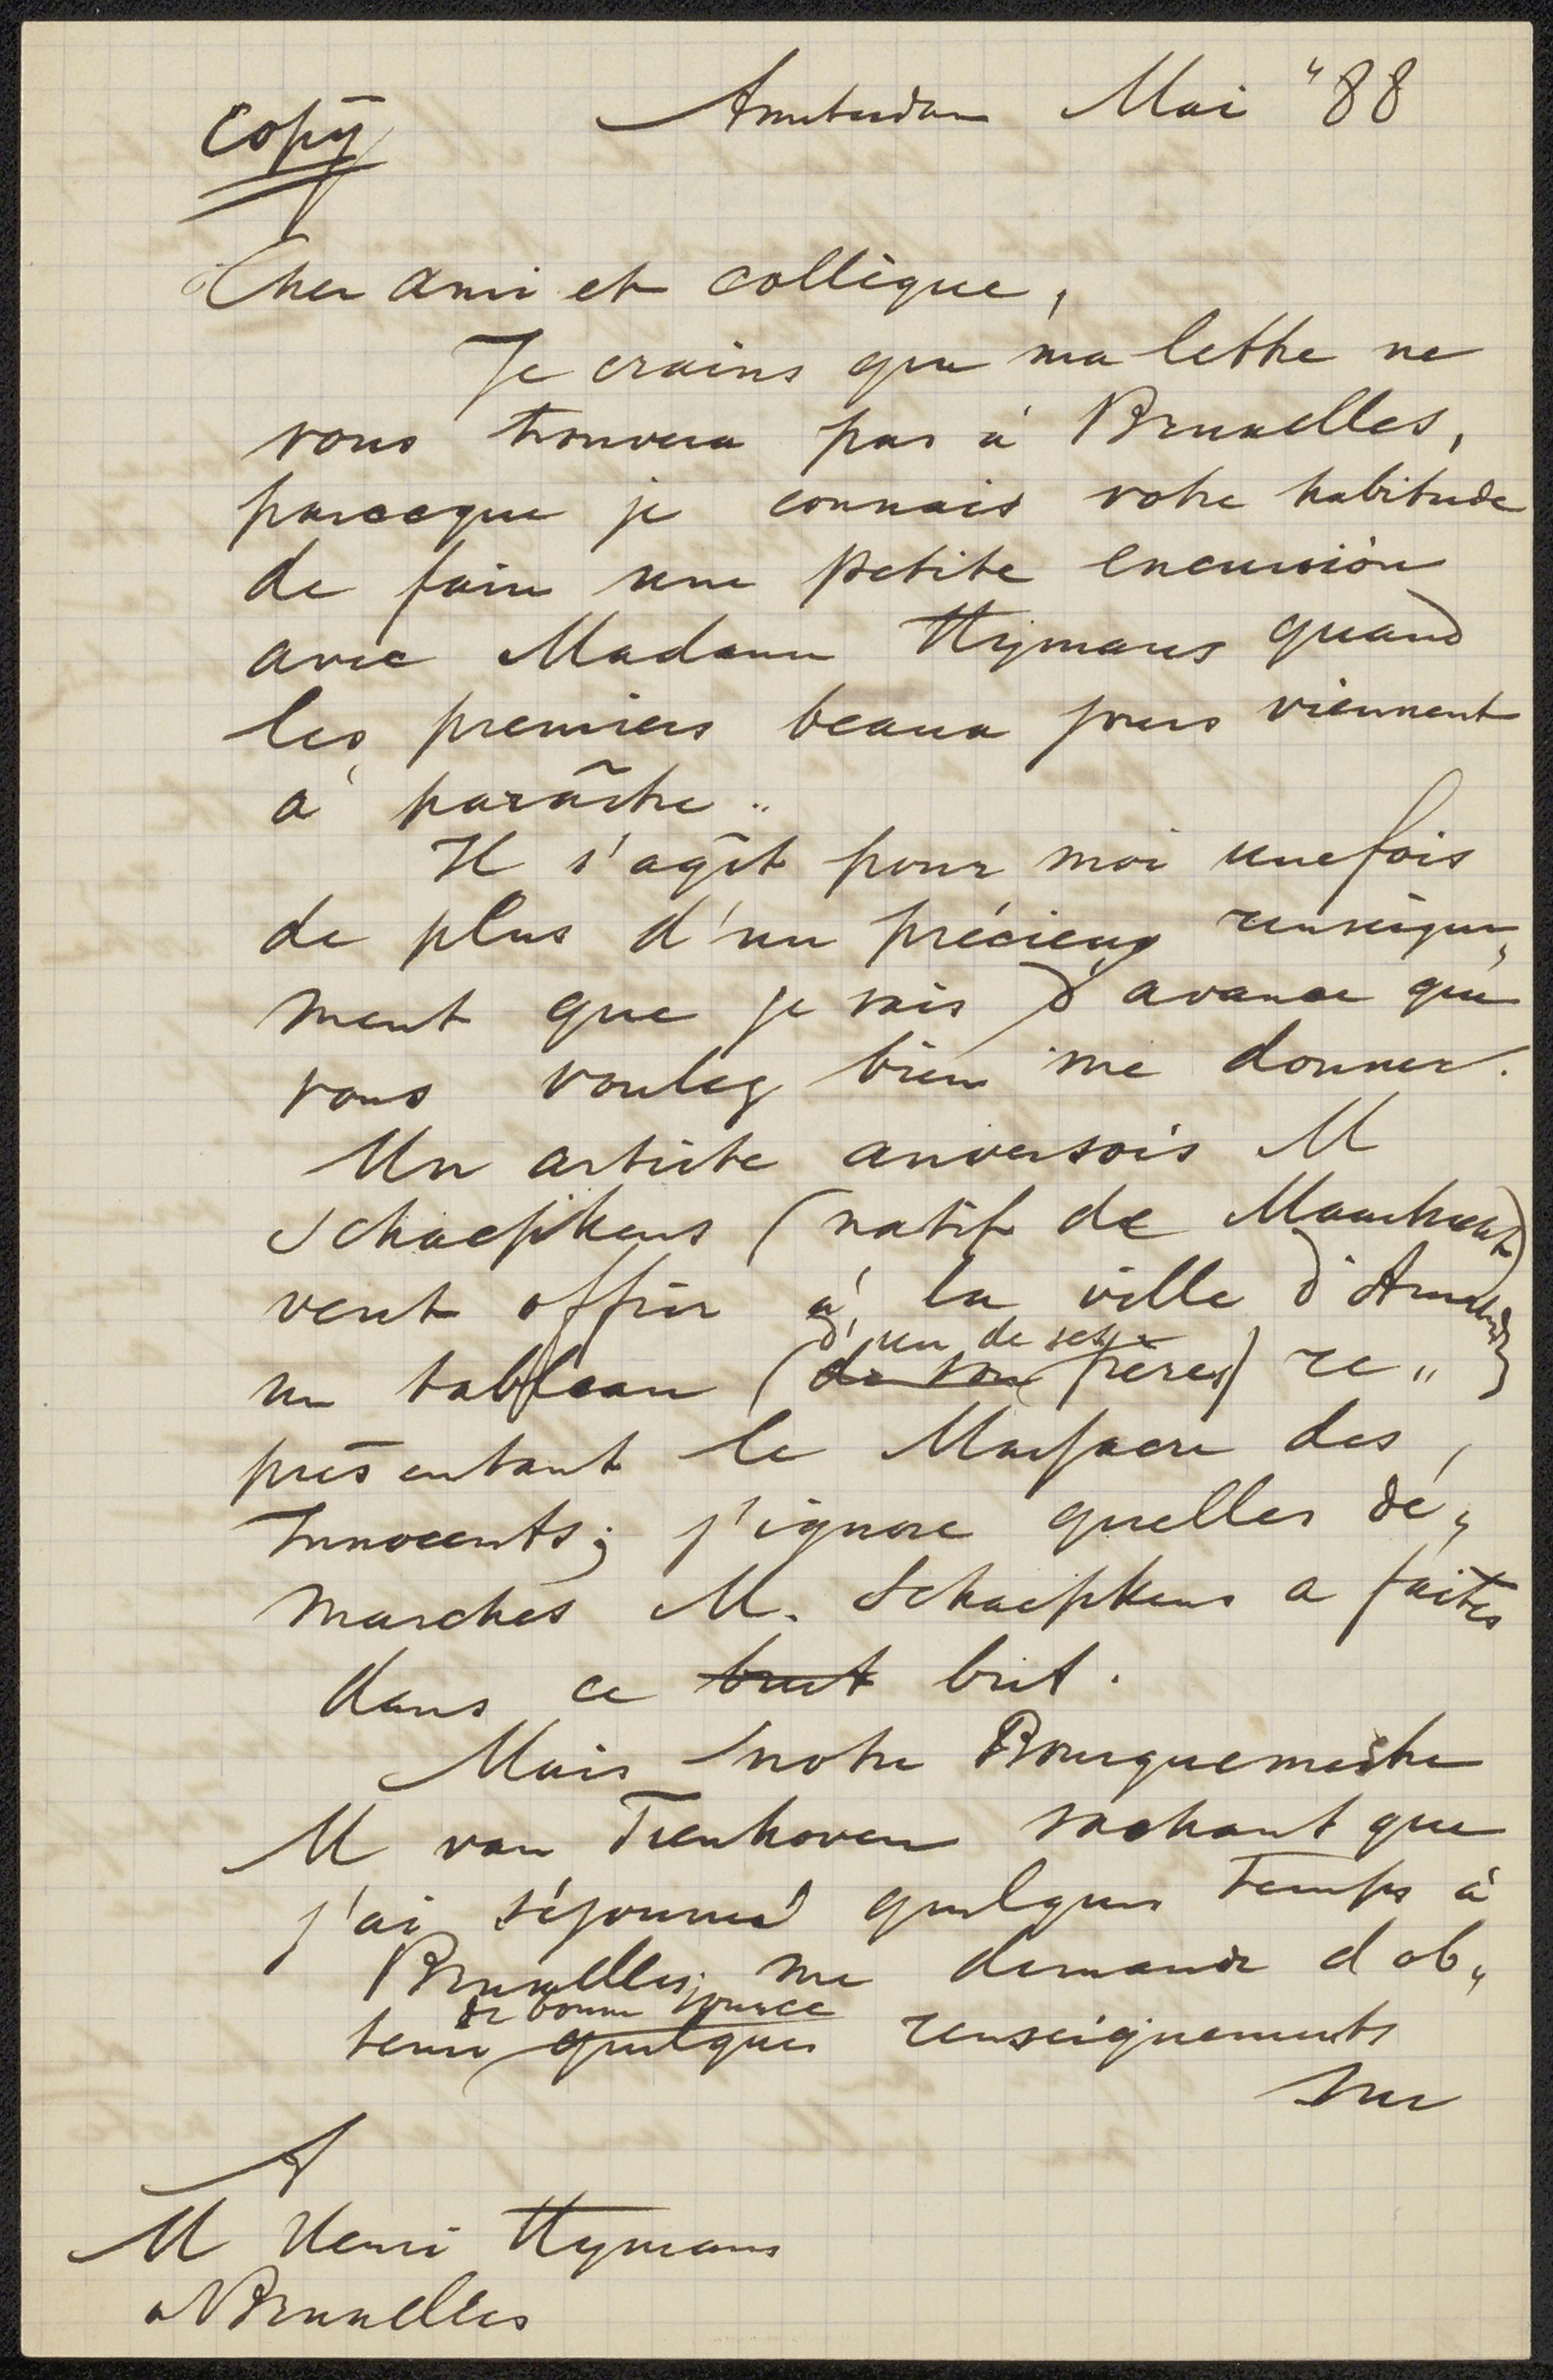 Copÿ
Amsterdam Mai "88
Cher ami et collègue,
Je crains que ma lettre ne
vous trouvera pas à Bruxelles,
parceque je connais votre habitude
de faire une petite excursion
avec Madame Hijmans quand
les premiers beaux jours viennent
à paraître.
Il s'agît pour moi unefois
de plus d'un précieux renseigne„
ment que je sais d'avance que
vous voulez bien me donner.
Un artiste anversois M
Schaepkens (natif de Maastricht)
veut offrir à la ville d'Amsterdam
d'un de ses
un tableau (de son frères) re„
présentant le Massacre des
Innocents; j'ignore quelles dé„
marches M. Schaepkens a faites
dans ce brut but.
Mais notre Bourguemestre
M van Tienhoven sachant que
j'ai séjourné quelque temps à
Bruxelles, me demande d'ob„
de bonne source
tenir quelques renseignements
sur
A
M Henri Hymans
à Bruxelles